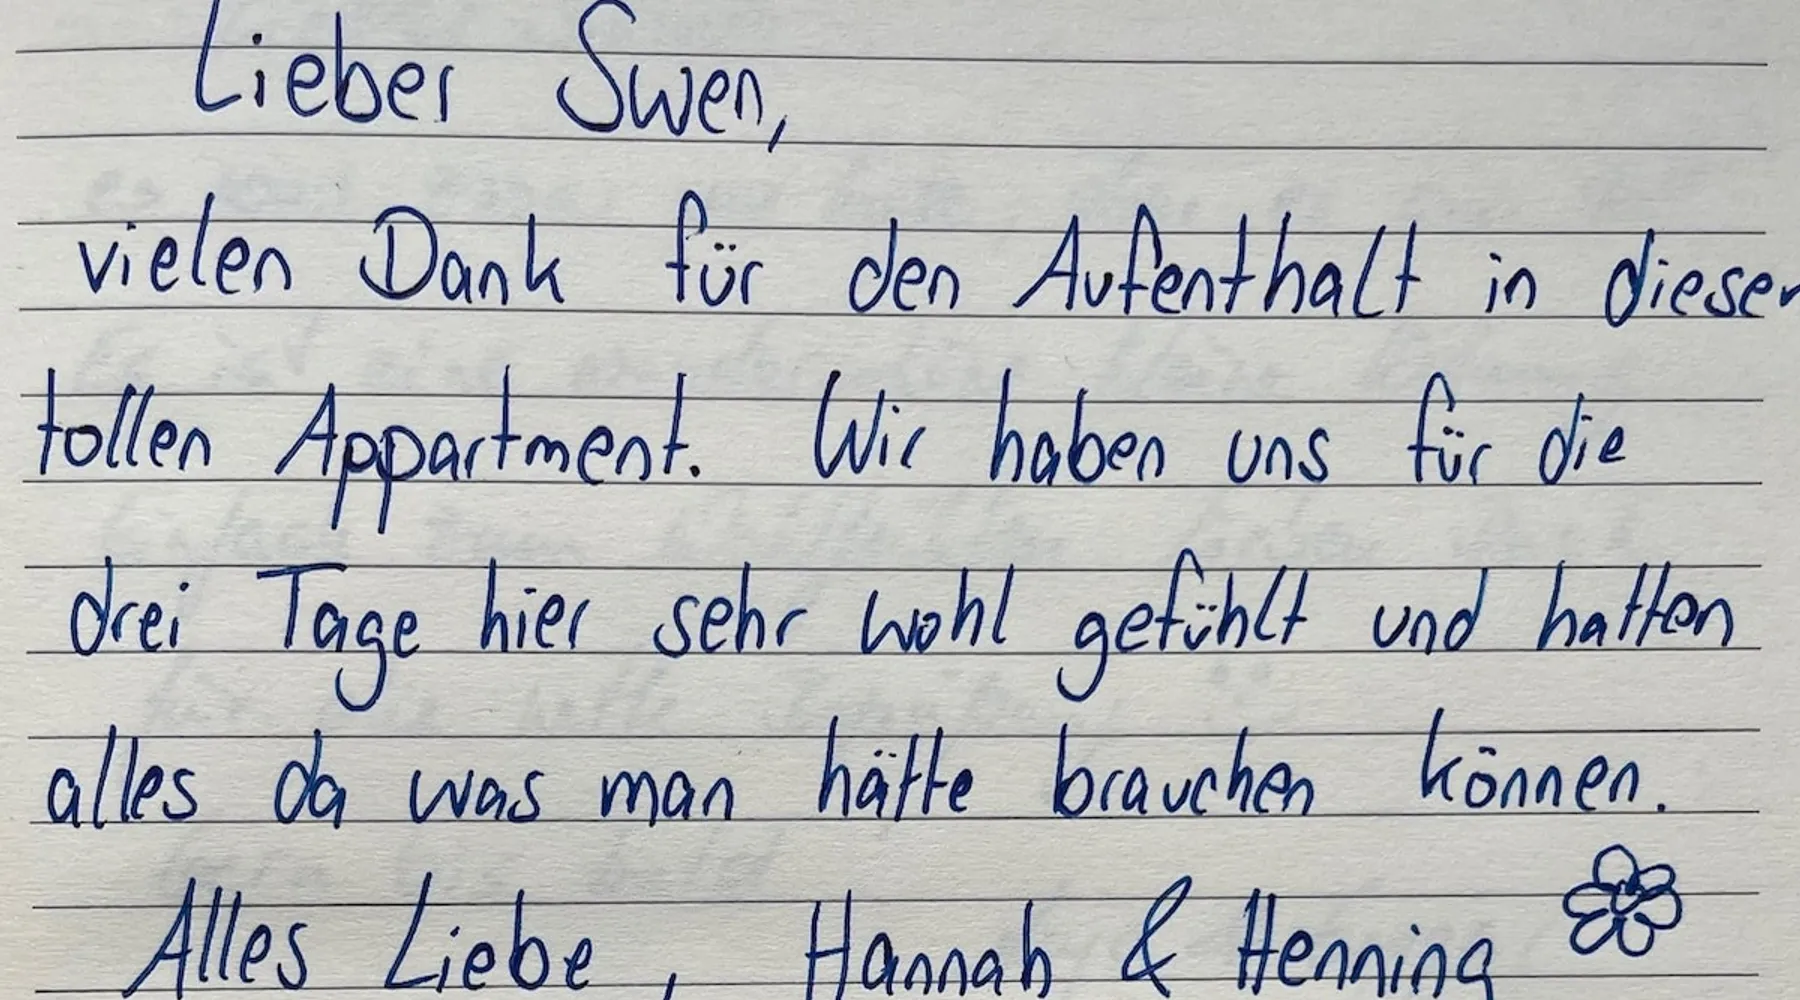 Lieber Swen,
vielen Dank für den Aufenthalt in dieser
tollen Appartment. Wir haben uns für die
drei Tage hier sehr wohl gefühlt und hatten
alles da was man hätte brauchen können.
Alles Liebe, Hannah & Henning